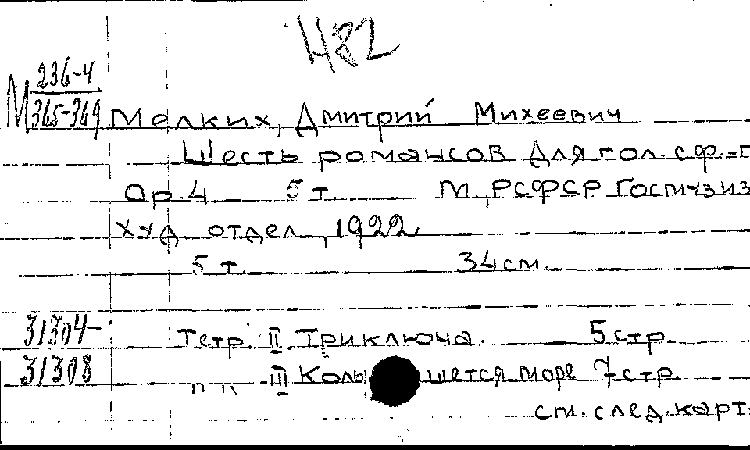 482
М 236-4
365-369 Мелких, Дмитрий Михеевич
Шесть романсов для гол. с ф.-п
Ор. 4 5 т М., РСФСР Госмузиз
худ отдел, 1922
5 т. 34 см.
31304- Тетр. II Три ключа. 5 стр
31308 " " III Колы шется море 7 стр.
см. след. карт.